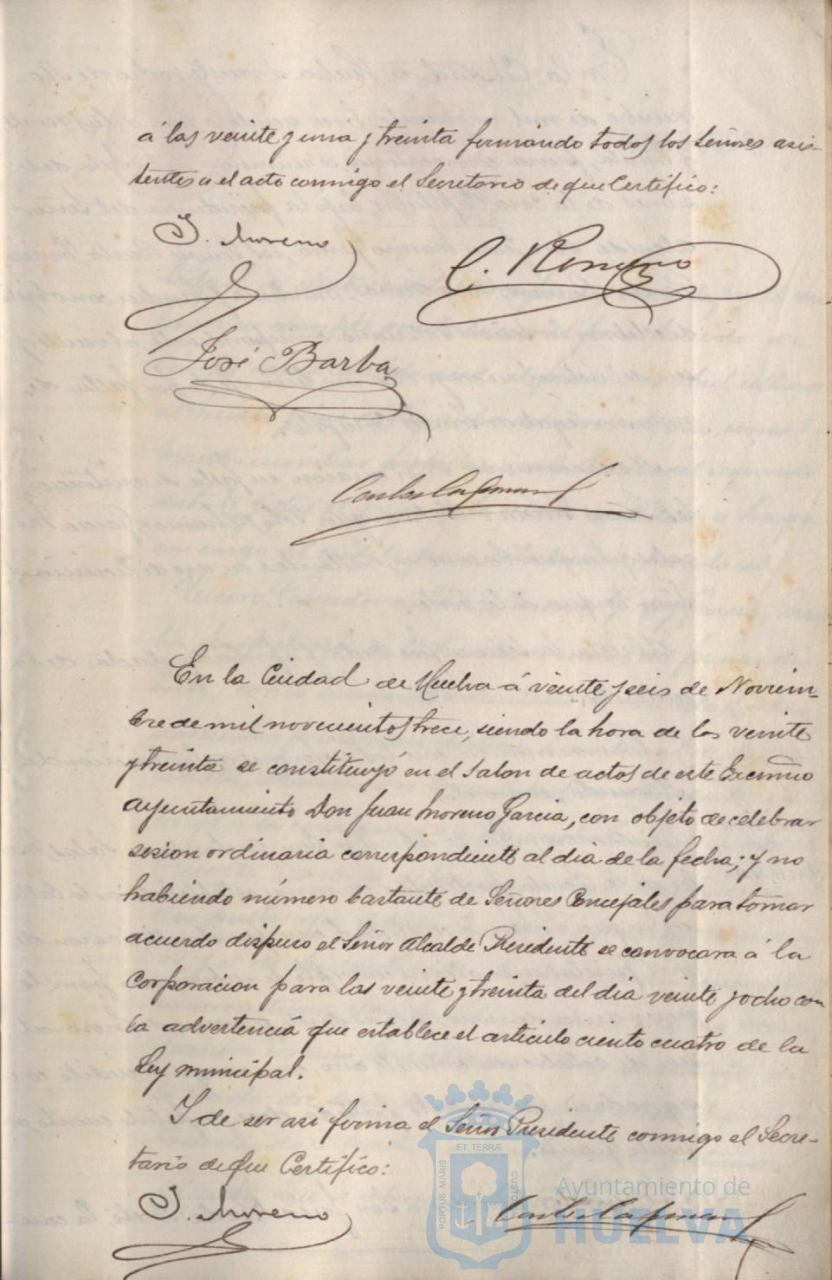 á las veinte y una y treinta firmando todos los Señores asis-
tentes a el acto conmigo el Secretario de que Certifico:
J. Moreno
C. Romero
José Barba
En la Ciudad de Huelva á veinte y seis de Noviem-
bre de mil novecientos trece, siendo la hora de las veinte
y treinta se constituyó en el Salon de actos de este Excmo
Ayuntamiento Don Juan Moreno Garcia, con objeto de celebrar
sesion ordinaria correspondiente al dia de la fecha; y no
habiendo número bastante de Señores Concejales para tomar
acuerdo dispuso el Señor Alcalde Presidente se convocara á la
Corporacion para las veinte y treinta del dia veinte y ocho con
la advertencia que establece el articulo ciento cuatro de la
Ley municipal.
Y de ser asi firma el Señor Presidente conmigo el Secre-
tario de que Certifico:
J. Moreno
ET TERRÆ
PORTUS MARIS
CUSTODIA
Ayuntamiento de
HUELVA